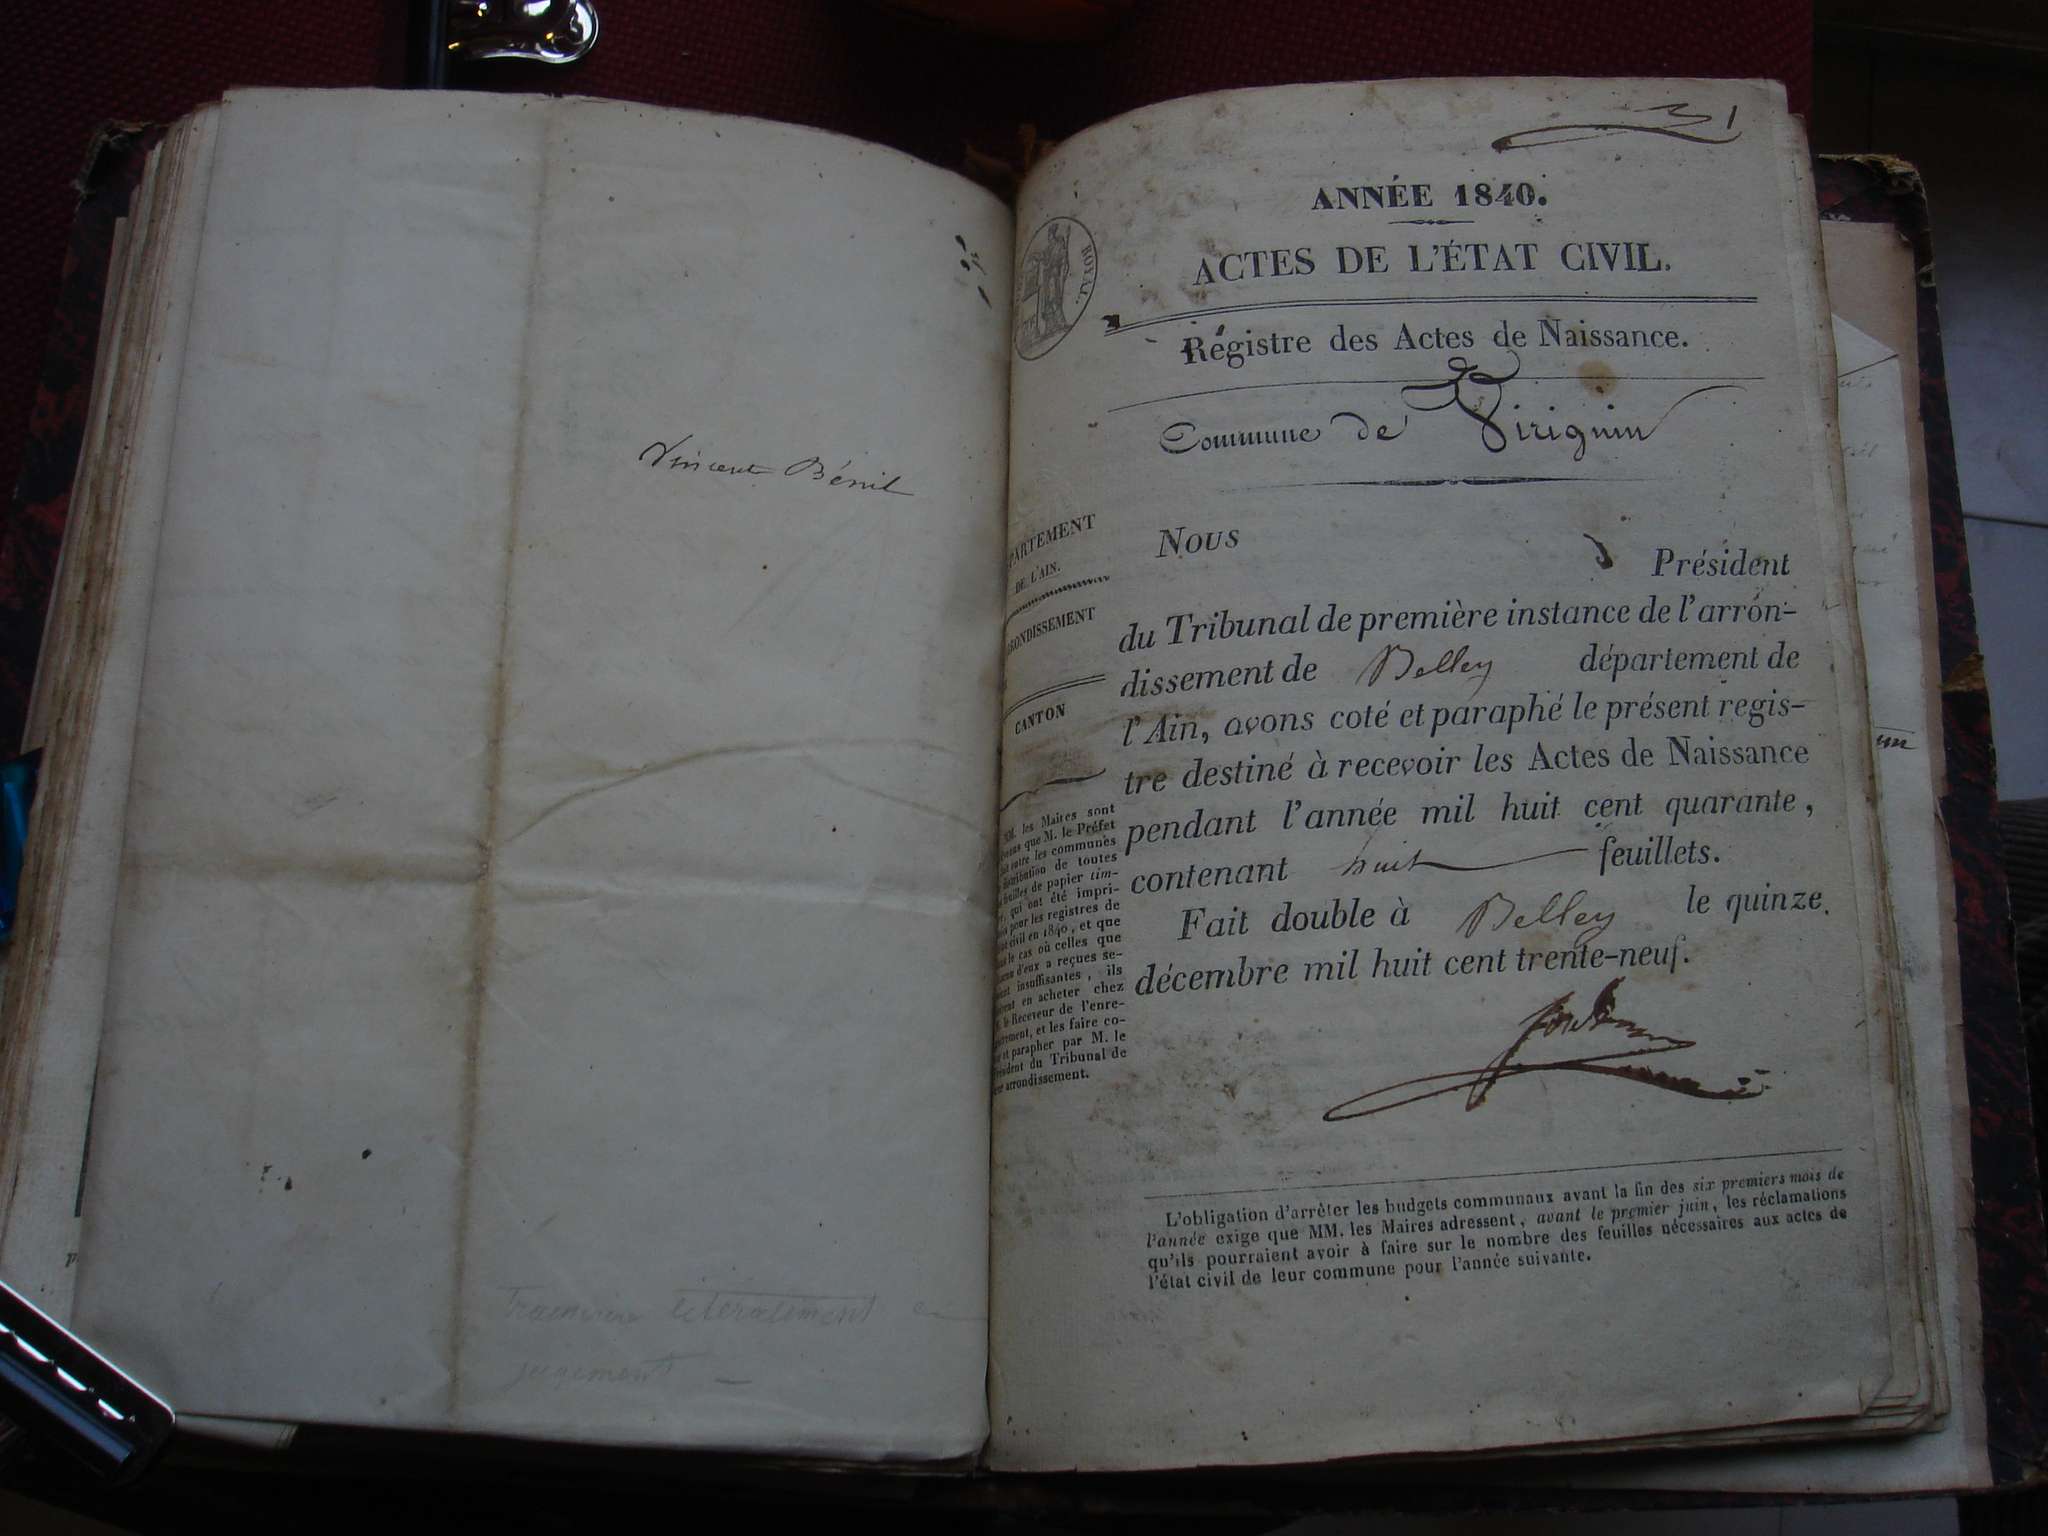 Vincent Bénil
litteralement
jugement —
1
ANNÉE 1840.
ACTES DE L'ÉTAT CIVIL.
ROYAL.
Régistre des Actes de Naissance.
Commune de Virignin
PARTEMENT
DE L'AIN.
RONDISSEMENT
CANTON
MM. les Maires sont
que M. le Préfet
entre les communes
distribution de toutes
feuilles de papier tim-
qui ont été impri-
pour les registres de
civil en 1840, et que
le cas où celles que
d'eux a reçues se-
insuffisantes, ils
en acheter chez
le Receveur de l'enre-
et les faire co-
et parapher par M. le
Président du Tribunal de
arrondissement.
Nous Président
du Tribunal de première instance de l'arron-
dissement de Belley département de
l'Ain, avons coté et paraphé le présent regis-
tre destiné à recevoir les Actes de Naissance
pendant l'année mil huit cent quarante,
contenant huit feuillets.
Fait double à Belley le quinze
décembre mil huit cent trente-neuf.
L'obligation d'arrêter les budgets communaux avant la fin des six premiers mois de
l'année exige que MM. les Maires adressent, avant le premier juin, les réclamations
qu'ils pourraient avoir à faire sur le nombre des feuilles nécessaires aux actes de
l'état civil de leur commune pour l'année suivante.